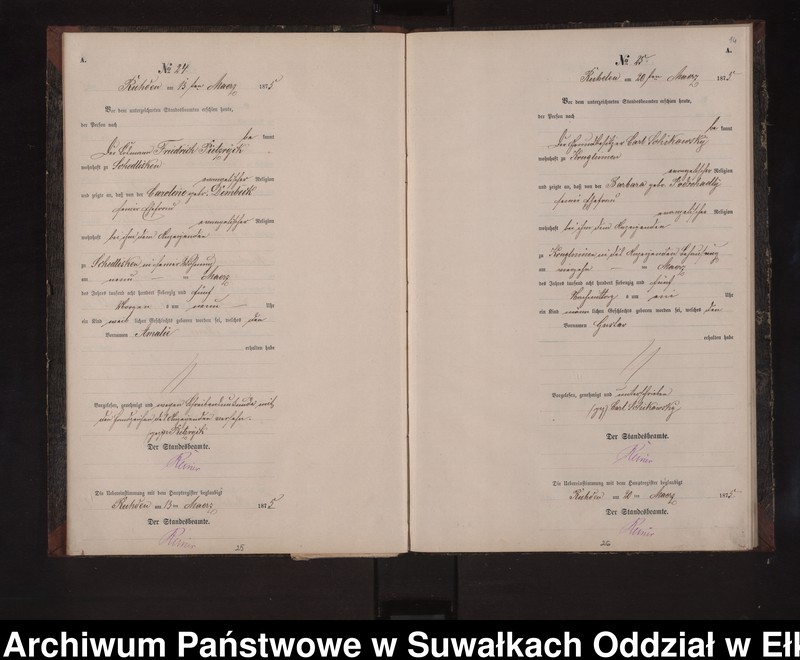 A.
№ 24.
Kuhöen am 13ten Maerz 1875
Vor dem unterzeichneten Standesbeamten erschien heute,
der Person nach
kannt
Friedrich Pietrzyk
wohnhaft zu Schedlisken
evangelischer Religion
und zeigte an, daß von der Caroline geb. Dembeck
seiner Ehefrau
evangelischer Religion
wohnhaft bei ihm dem Anzeigenden
zu Schedlisken in seiner Wohnung
am neun ten Maerz
des Jahres tausend acht hundert siebenzig und fünf
Morgens um neun Uhr
ein Kind weib lichen Geschlechts geboren worden sei, welches den
Vornamen Amalie
erhalten habe
Vorgelesen, genehmigt und wegen Schreibensunkunde mit
dem Handzeichen des Anzeigenden versehen
Pietrzyk
Der Standesbeamte.
Die Uebereinstimmung mit dem Hauptregister beglaubigt
Kuhöen am 13ten Maerz 1875.
Der Standesbeamte.
25
A.
№ 25.
am 20ten Maerz 1875
Vor dem unterzeichneten Standesbeamten erschien heute,
der Person nach
kannt
Carl Schikowsky
wohnhaft zu
evangelischer Religion
und zeigte an, daß von der Barbara geb.
seiner Ehefrau
evangelischer Religion
wohnhaft bei ihm dem Anzeigenden
zu in des Anzeigenden Behausung
am ten Maerz
des Jahres tausend acht hundert siebenzig und fünf
Nachmittag um Uhr
ein Kind männ lichen Geschlechts geboren worden sei, welches den
Vornamen Gustav
erhalten habe
Vorgelesen, genehmigt und unterschrieben
(gez) Carl Schikowsky
Der Standesbeamte.
Die Uebereinstimmung mit dem Hauptregister beglaubigt
Kuhöen am 20ten Maerz 1875
Der Standesbeamte.
26
Archiwum Państwowe w Suwałkach Oddział w Eł